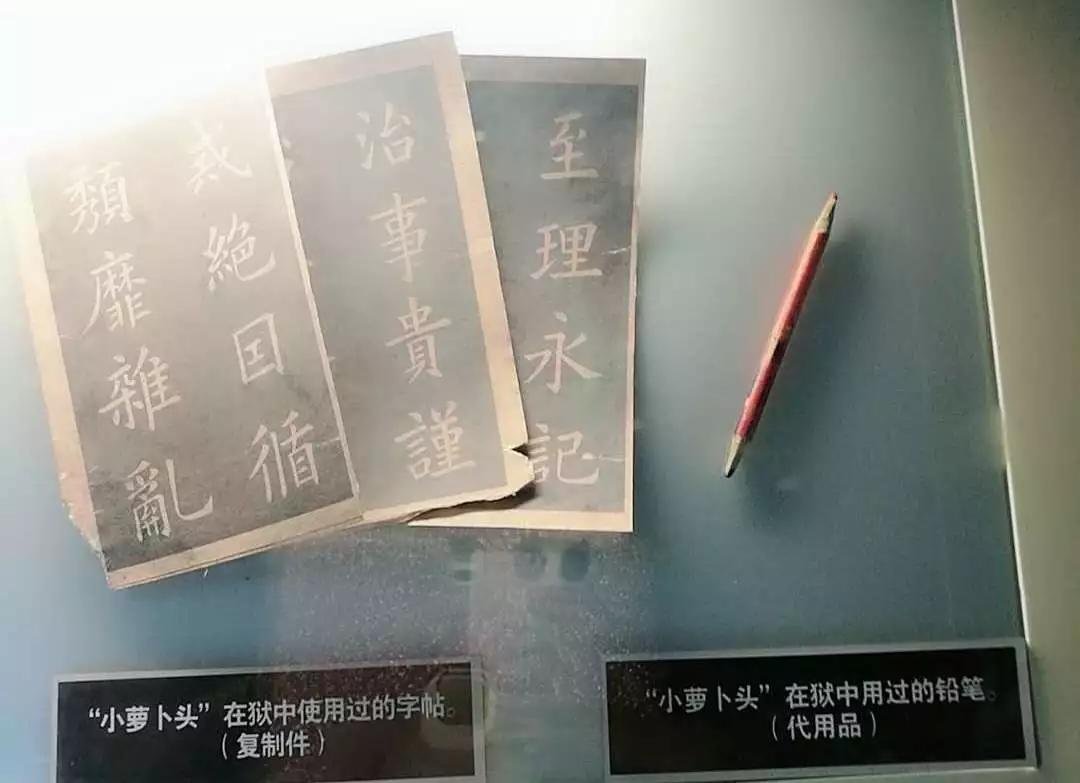 至理永記
治事貴謹
戒絶囙循
頹靡雜亂
“小萝卜头”在狱中使用过的字帖。
（复制件）
“小萝卜头”在狱中用过的铅笔。
（代用品）